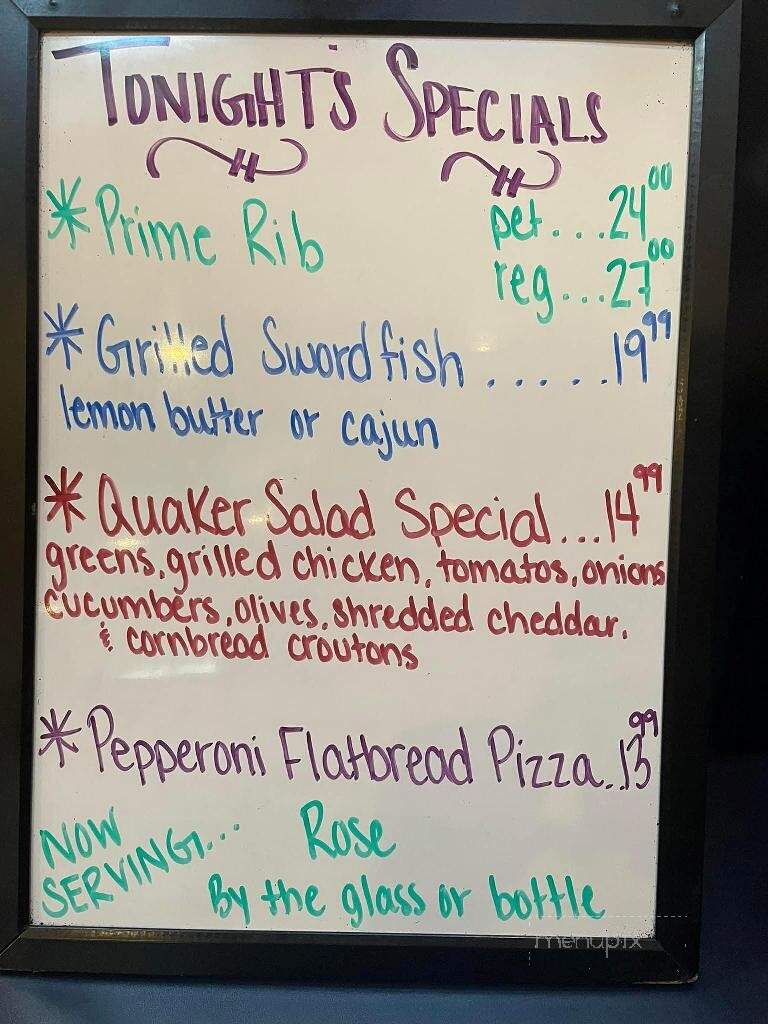 TONIGHT'S SPECIALS
* Prime Rib pet...24.00
reg...27.00
* Grilled Swordfish.....19.99
lemon butter or cajun
* Quaker Salad Special...14.99
greens, grilled chicken, tomatos, onions
cucumbers, olives, shredded cheddar,
& cornbread croutons
* Pepperoni Flatbread Pizza..13.99
NOW SERVING... Rose
By the glass or bottle
menupix